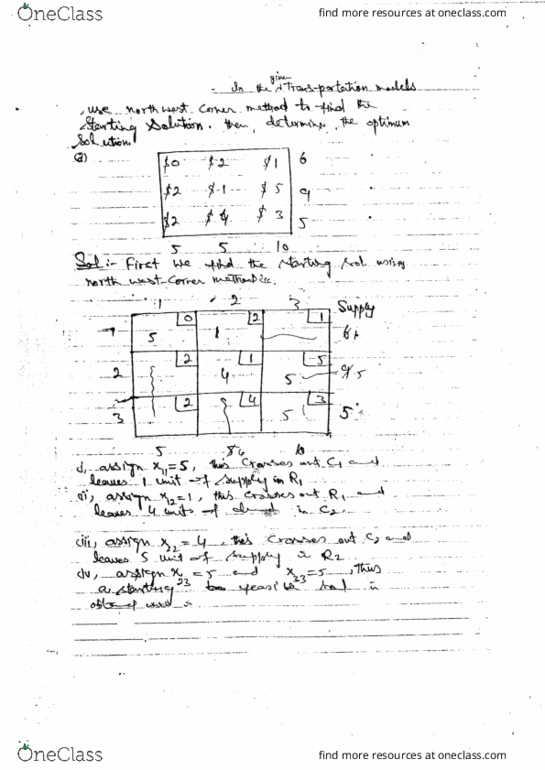 OneClass
find more resources at oneclass.com
given
- In the transportation models
, use north west corner method to find the
starting solution. then, determine the optimum
solution
(a)
$0 $2 $1 6
$2 $1 $5 9
$2 $4 $3 5
5 5 10
Sol:- First we find the starting sol. using
north west-corner method
1 2 3 Supply
5 0 1 2 1
2 2 4 1 5 5 5
3 2 4 5 3 5
5 4 10
i, assign x11=5, this crosses out C1 and
leaves 1 unit of supply in R1
ii, assign x12=1, this crosses out R1 and
leaves 4 units of demand in C2.
iii, assign x22=4, this crosses out C2 and
leaves 5 unit of supply in R2
iv, assign x23=5 and x33=5, thus
a starting feasible sol is
OneClass
find more resources at oneclass.com